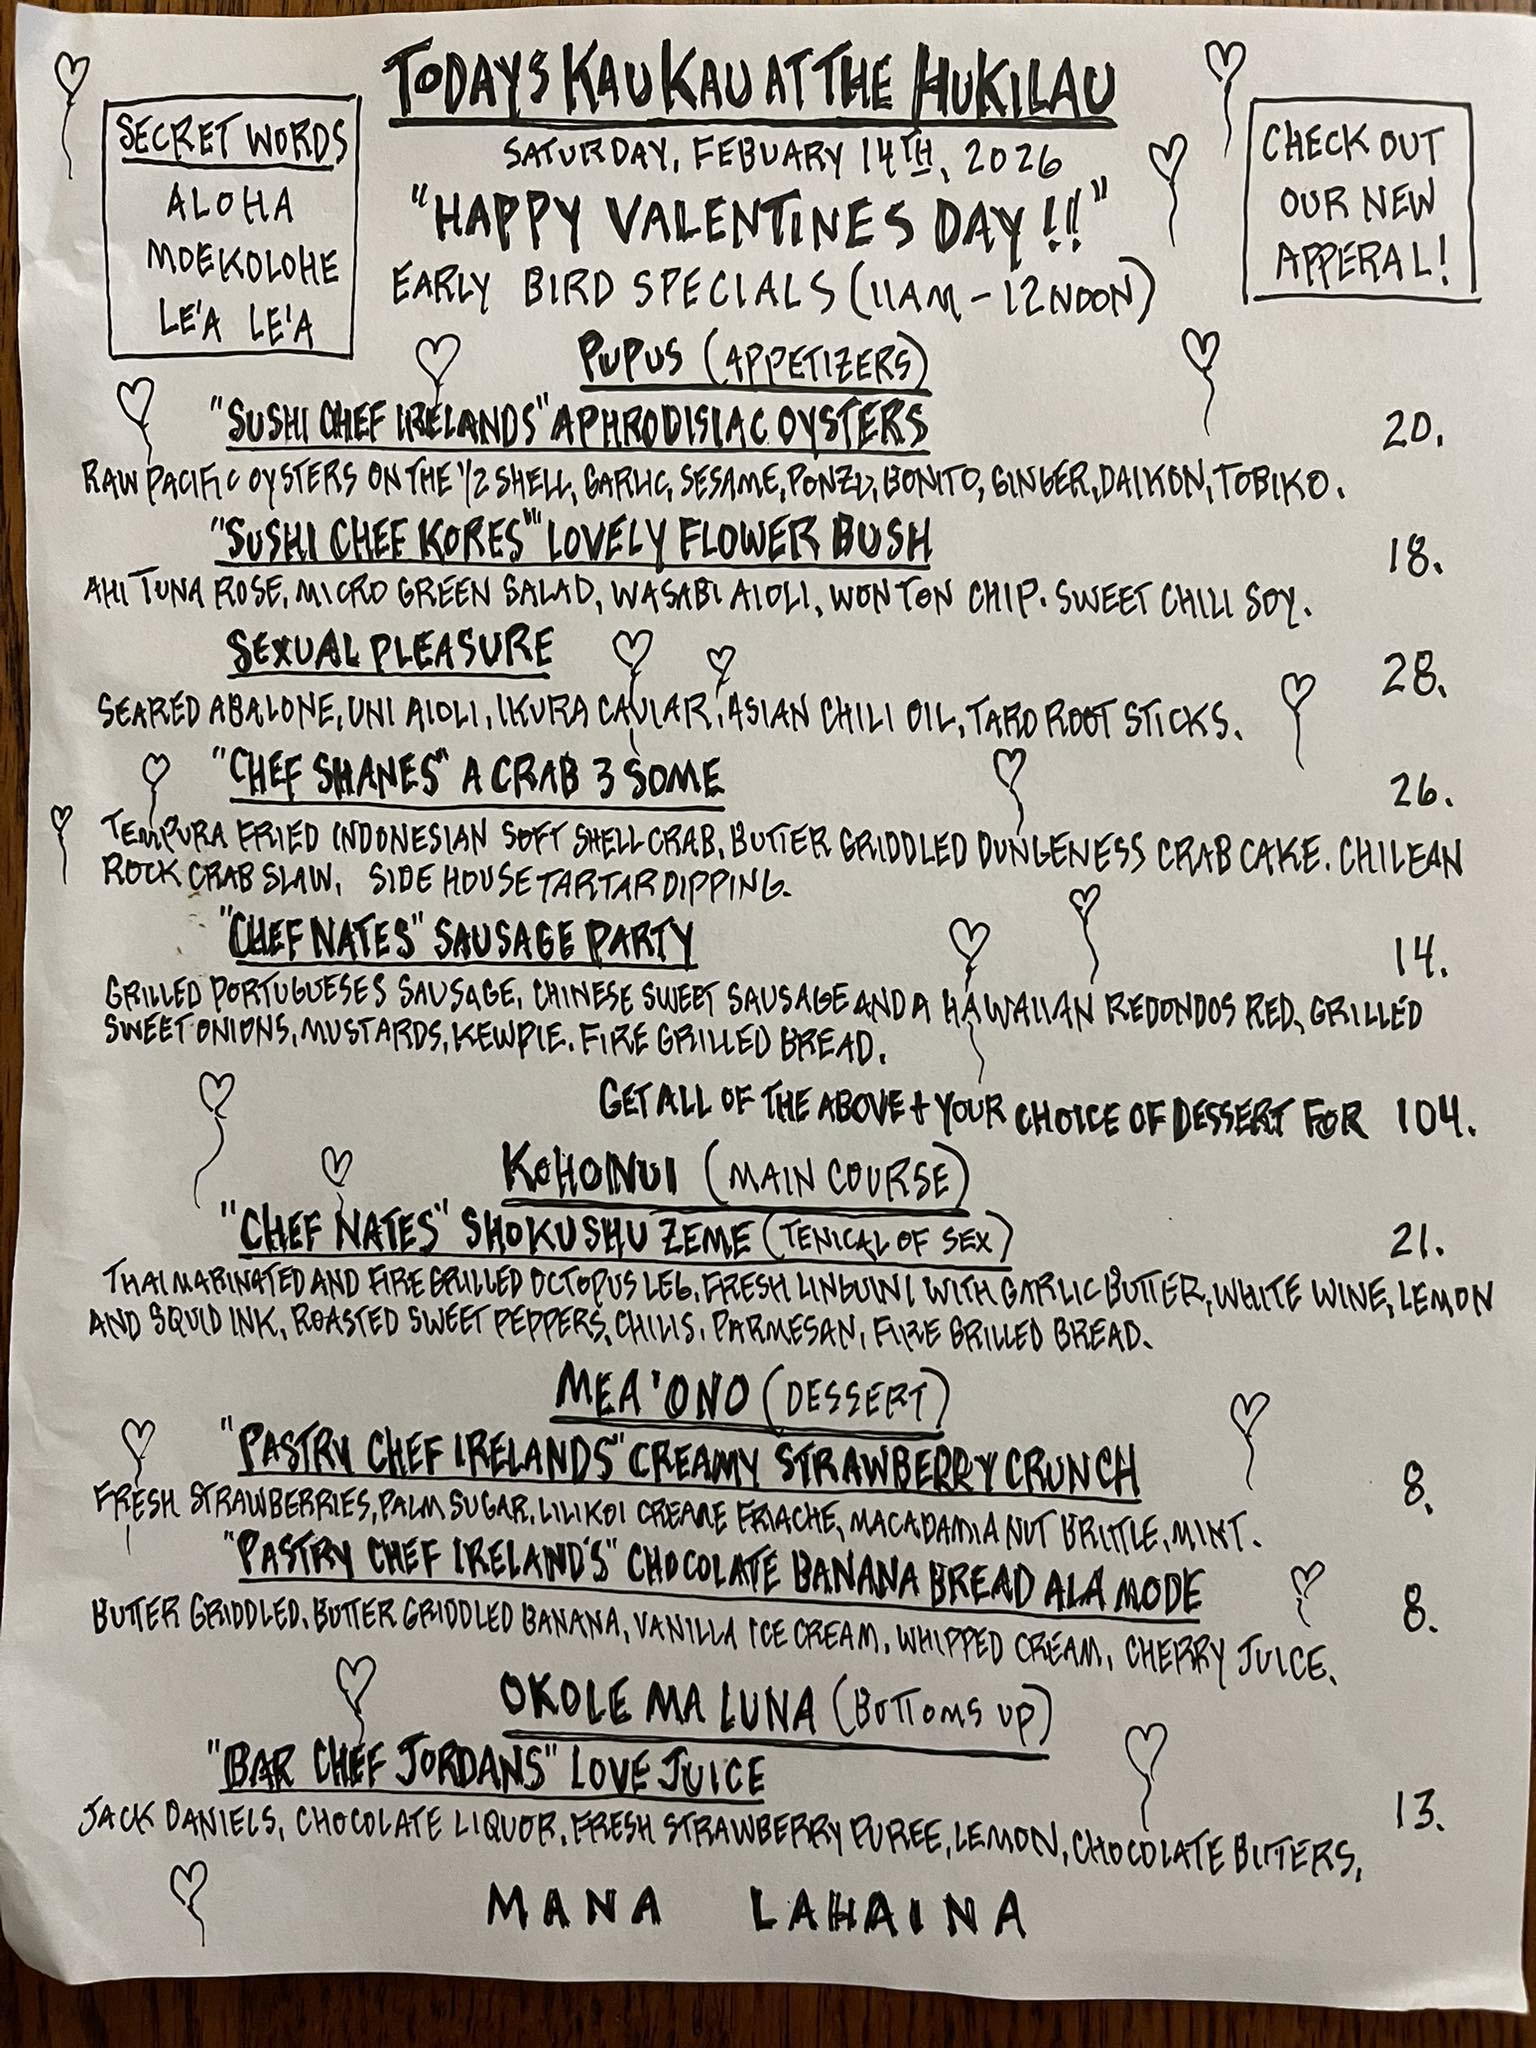 TODAYS KAU KAU AT THE HUKILAU
SATURDAY, FEBUARY 14TH, 2026
"HAPPY VALENTINES DAY!!"
EARLY BIRD SPECIALS (11AM - 12 NOON)
SECRET WORDS
ALOHA
MOEKOLOHE
LE'A LE'A
CHECK OUT
OUR NEW
APPERAL!
PUPUS (APPETIZERS)
"SUSHI CHEF IRELANDS" APHRODISIAC OYSTERS 20.
RAW PACIFIC OYSTERS ON THE 1/2 SHELL, GARLIC, SESAME, PONZU, BONITO, GINGER, DAIKON, TOBIKO.
"SUSHI CHEF KORES'" LOVELY FLOWER BUSH 18.
AHI TUNA ROSE, MICRO GREEN SALAD, WASABI AIOLI, WONTON CHIP. SWEET CHILI SOY.
SEXUAL PLEASURE 28.
SEARED ABALONE, UNI AIOLI, IKURA CAVIAR, ASIAN CHILI OIL, TARO ROOT STICKS.
"CHEF SHANES" A CRAB 3 SOME 26.
TEMPURA FRIED INDONESIAN SOFT SHELL CRAB, BUTTER GRIDDLED DUNGENESS CRAB CAKE. CHILEAN
ROCK CRAB SLAW, SIDE HOUSE TARTAR DIPPING.
"CHEF NATES" SAUSAGE PARTY 14.
GRILLED PORTUGUESES SAUSAGE, CHINESE SWEET SAUSAGE AND A HAWAIIAN REDONDOS RED, GRILLED
SWEET ONIONS, MUSTARDS, KEWPIE. FIRE GRILLED BREAD.
GET ALL OF THE ABOVE + YOUR CHOICE OF DESSERT FOR 104.
KOHONUI (MAIN COURSE)
"CHEF NATES" SHOKUSHU ZEME (TENICAL OF SEX) 21.
THAI MARINATED AND FIRE GRILLED OCTOPUS LEG, FRESH LINGUINI WITH GARLIC BUTTER, WHITE WINE, LEMON
AND SQUID INK, ROASTED SWEET PEPPERS, CHILIS, PARMESAN, FIRE GRILLED BREAD.
MEA'ONO (DESSERT)
"PASTRY CHEF IRELANDS" CREAMY STRAWBERRY CRUNCH 8.
FRESH STRAWBERRIES, PALM SUGAR, LILIKOI CREAME FRIACHE, MACADAMIA NUT BRITTLE, MINT.
"PASTRY CHEF IRELAND'S" CHOCOLATE BANANA BREAD ALA MODE 8.
BUTTER GRIDDLED, BUTTER GRIDDLED BANANA, VANILLA ICE CREAM, WHIPPED CREAM, CHERRY JUICE.
OKOLE MA LUNA (BOTTOMS UP)
"BAR CHEF JORDANS" LOVE JUICE 13.
JACK DANIELS, CHOCOLATE LIQUOR, FRESH STRAWBERRY PUREE, LEMON, CHOCOLATE BITTERS,
MANA LAHAINA